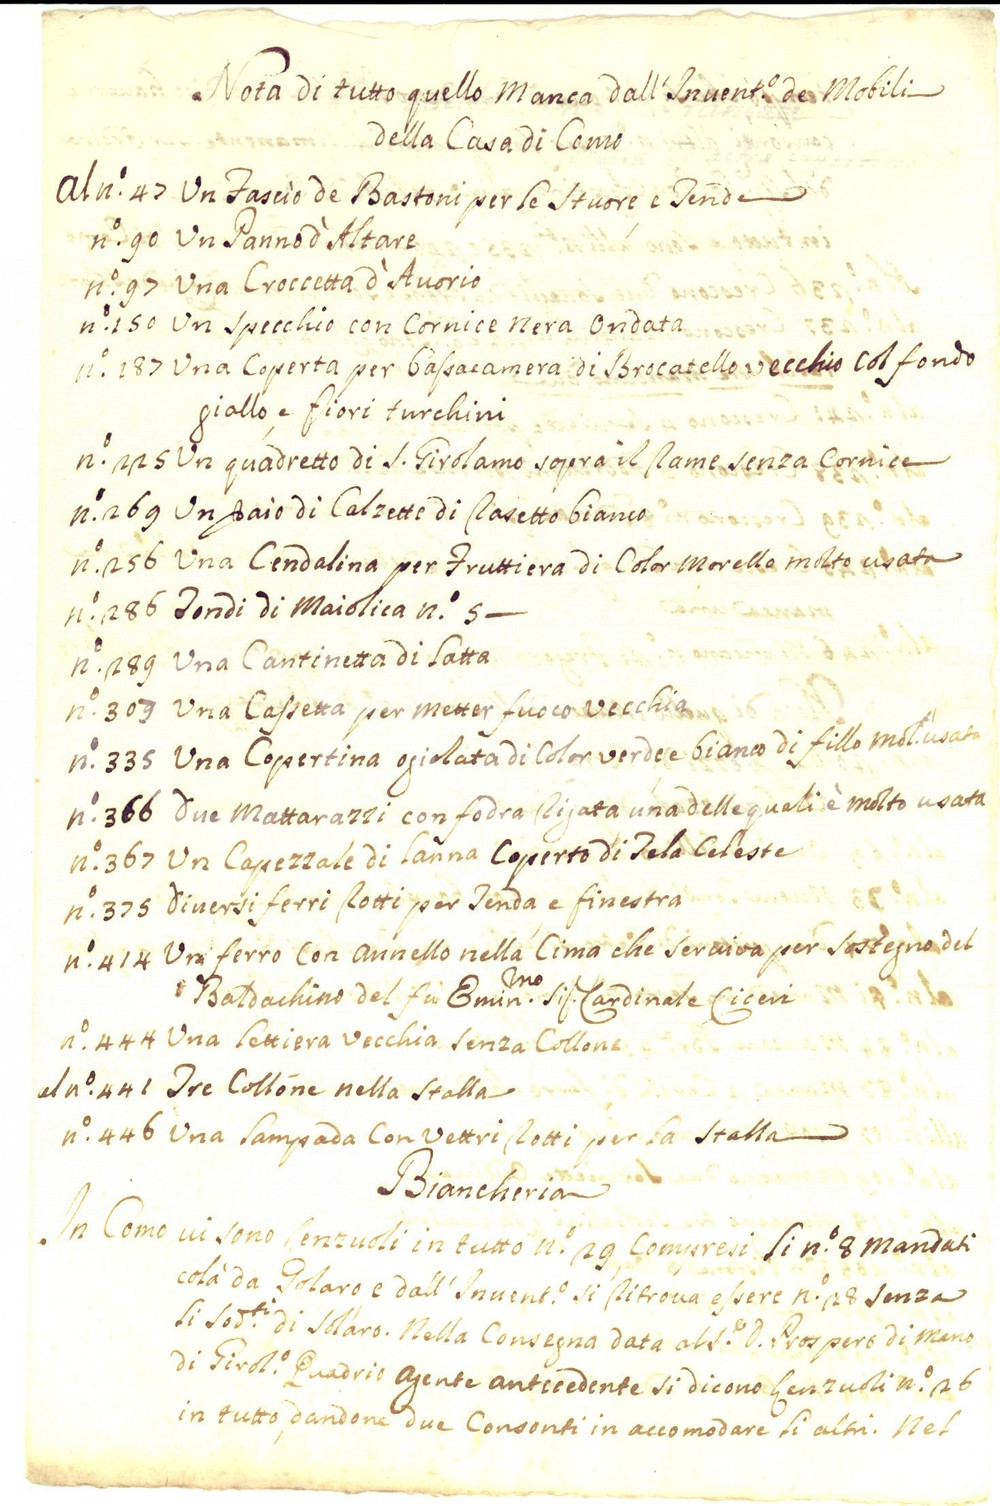 Nota di tutto quello manca dall'Invent.º de Mobili
della Casa di Como
al n.º 47 Un Fascio de Bastoni per le Stuore e Tende
n.º 90 Un Panno d'Altare
n.º 97 Una Croccetta d'Avorio
n.º 150 Un specchio con Cornice nera ondata
n.º 187 Una Coperta per bassacamera di Brocatello vecchio col fondo
giallo e fiori turchini
n.º 225 Un quadretto di S. Girolamo sopra il Rame senza Cornice
n.º 269 Un paio di Calzette di Rasetto bianco
n.º 256 Una Cendalina per Fruttiera di Color Morello molto usata
n.º 286 Tondi di Maiolica n.º 5
n.º 289 Una Cantinetta di latta
n.º 309 Una Cassetta per metter fuoco vecchia
n.º 335 Una Copertina ogiolata di Color verde e bianco di fillo mol.º usata
n.º 366 Due Mattarazzi con fodra Rigata una delle quali è molto usata
n.º 367 Un Capezzale di lanna Coperto di Tela Celeste
n.º 375 Diversi ferri Rotti per Tenda e finestra
n.º 414 Un ferro con Annello nella Cima che serviva per sostegno del
Baldachino del fù Emin.mo Sig. Cardinale Ciceri
n.º 444 Una lettiera vecchia senza Collone
al n.º 441 Tre Collone nella stalla
n.º 446 Una lampada con vettri Rotti per la stalla
Biancheria
In Como vi sono lenzuoli in tutto n.º 29 Compresi li n.º 8 mandati
colà da Solaro e dall'Invent.º si Ritrova essere n.º 28 senza
li sod.ti di Solaro. Nella Consegna data al S.r D. Prospero di mano
di Girol.º Quadrio Agente antecedente si dicono lenzuoli n.º 26
in tutto, dandone due Consonti in accomodare li altri. Nel